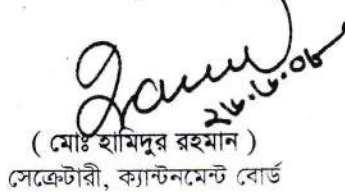 ২৬.৬.০৮
( মোঃ হামিদুর রহমান )
সেক্রেটারী, ক্যান্টনমেন্ট বোর্ড